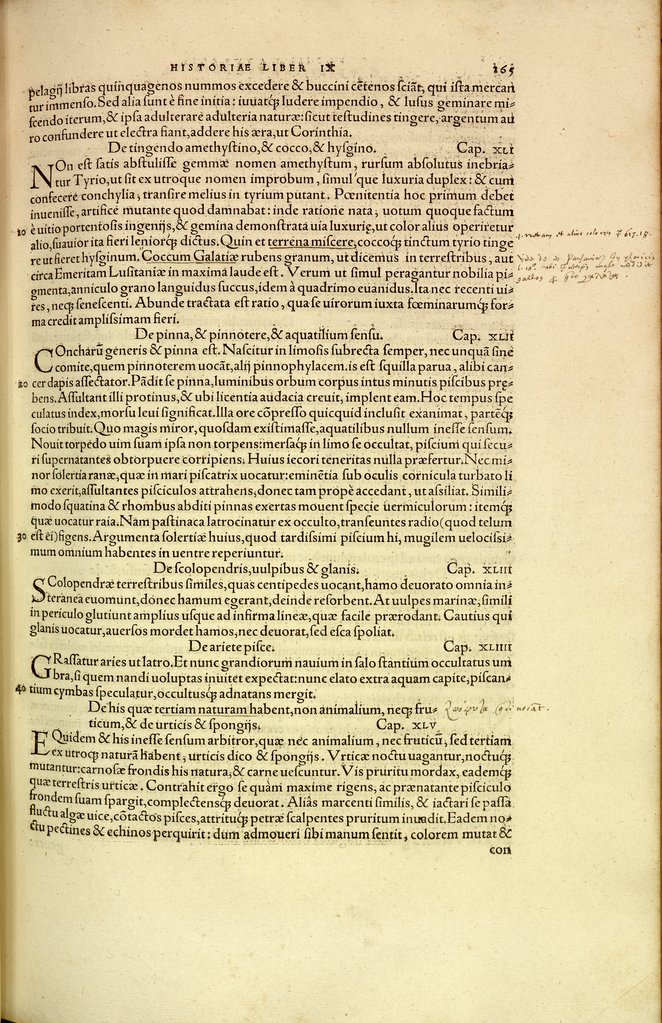 HISTORIAE LIBER IX 165
pelagij libras quinquagenos nummos excedere & buccini cẽtenos ſciãt, qui iſta mercan
tur immenſo. Sed alia ſunt è fine initia: iuuatq́; ludere impendio, & luſus geminare mi⸗
ſcendo iterum, & ipſa adulterare adulteria naturæ: ſicut teſtudines tingere, argentum au
ro confundere ut electra fiant, addere his æra, ut Corinthia.
De tingendo amethyſtino, & cocco, & hyſgino. Cap. XLI
NOn eſt ſatis abſtuliſſe gemmæ nomen amethyſtum, rurſum abſolutus inebria⸗
tur Tyrio, ut ſit ex utroque nomen improbum, ſimuĺque luxuria duplex: & cum
confecere conchylia, tranſire melius in tyrium putant. Pœnitentia hoc primum debet
inueniſſe, artifice mutante quod damnabat: inde ratione nata, uotum quoque factum
10 è uitio portentoſis ingenijs, & gemina demonſtrata uia luxurie, ut color alius operiretur
alio, ſuauior ita fieri leniorq́; dictus. Quin et terrena miſcere, coccoq́; tinctum tyrio tinge
re ut fieret hyſginum. Coccum Galatiæ rubens granum, ut dicemus in terreſtribus, aut
circa Emeritam Luſitaniæ in maxima laude eſt. Verum ut ſimul peragantur nobilia pi⸗
gmenta, anniculo grano languidus ſuccus, idem à quadrimo euanidus. Ita nec recenti ui⸗
res, neq́; ſeneſcenti. Abunde tractata eſt ratio, qua ſe uirorum iuxta fœminarumq́; for⸗
ma credit ampliſſimam fieri.
De pinna, & pinnotere, & aquatilium ſenſu. Cap. XLII
COncharũ generis & pinna eſt. Naſcitur in limoſis ſubrecta ſemper, nec unquã ſine
comite, quem pinnoterem uocãt, alij pinnophylacem. is eſt ſquilla parua, alibi can⸗
20 cer dapis aſſectator. Pãdit ſe pinna, luminibus orbum corpus intus minutis piſcibus prę⸗
bens. Aſſultant illi protinus, & ubi licentia audacia creuit, implent eam. Hoc tempus ſpe
culatus index, morſu leui ſignificat. Illa ore cõpreſſo quicquid incluſit exanimat, partẽq́;
ſocio tribuit. Quo magis miror, quoſdam exiſtimaſſe, aquatilibus nullum ineſſe ſenſum.
Nouit torpedo uim ſuam ipſa non torpens: merſaq́; in limo ſe occultat, piſcium qui ſecu⸗
ri ſupernatantes obtorpuere corripiens. Huius iecori teneritas nulla præfertur. Nec mi⸗
nor ſolertia ranæ, quæ in mari piſcatrix uocatur: eminẽtia ſub oculis cornicula turbato li
mo exerit, aſſultantes piſciculos attrahens, donec tam propè accedant, ut aſſiliat. Simili⸗
modo ſquatina & rhombus abditi pinnas exertas mouent ſpecie uermiculorum: itemq́;
quæ uocatur raia. Nam paſtinaca latrocinatur ex occulto, tranſeuntes radio (quod telum
30 eſt ei) figens. Argumenta ſolertiæ huius, quod tardiſſimi piſcium hi, mugilem uelociſſi⸗
mum omnium habentes in uentre reperiuntur.
De ſcolopendris, uulpibus & glanis. Cap. XLIII
SColopendræ terreſtribus ſimiles, quas centipedes uocant, hamo deuorato omnia in⸗
teranea euomunt, donec hamum egerant, deinde reſorbent. At uulpes marinæ, ſimili
in periculo glutiunt amplius uſque ad infirma lineæ, quæ facile prærodant. Cautius qui
glanis uocatur, auerſos mordet hamos, nec deuorat, ſed eſca ſpoliat.
De ariete piſce. Cap. XLIIII
GRaſſatur aries ut latro. Et nunc grandiorum nauium in ſalo ſtantium occultatus um
bra, ſi quem nandi uoluptas inuitet expectat: nunc elato extra aquam capite, piſcan⸗
40 tium cymbas ſpeculatur, occultuſq́; adnatans mergit.
De his quæ tertiam naturam habent, non animalium, neq́; fru⸗
ticum, & de urticis & ſpongijs. Cap. XLV
EQuidem & his ineſſe ſenſum arbitror, quæ nec animalium, nec fruticũ, ſed tertiam
ex utroq́; naturã habent, urticis dico & ſpongijs. Vrticæ noctu uagantur, noctuq́;
mutantur: carnoſæ frondis his natura, & carne ueſcuntur. Vis pruritu mordax, eademq́;
quæ terreſtris urticæ. Contrahit ergo ſe quàm maxime rigens, ac prænatante piſciculo
frondem ſuam ſpargit, complectenſq́; deuorat. Aliâs marcenti ſimilis, & iactari ſe paſſa
fluctu algæ uice, cõtactos piſces, attrituq́; petræ ſcalpentes pruritum inuadit. Eadem no⸗
ctu pectines & echinos perquirit: dum admoueri ſibi manum ſentit, colorem mutat &
con